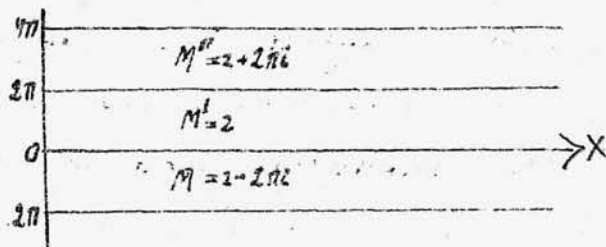 4π
M''=z+2πi
2π
M'=z
0 X
M=z-2πi
2π